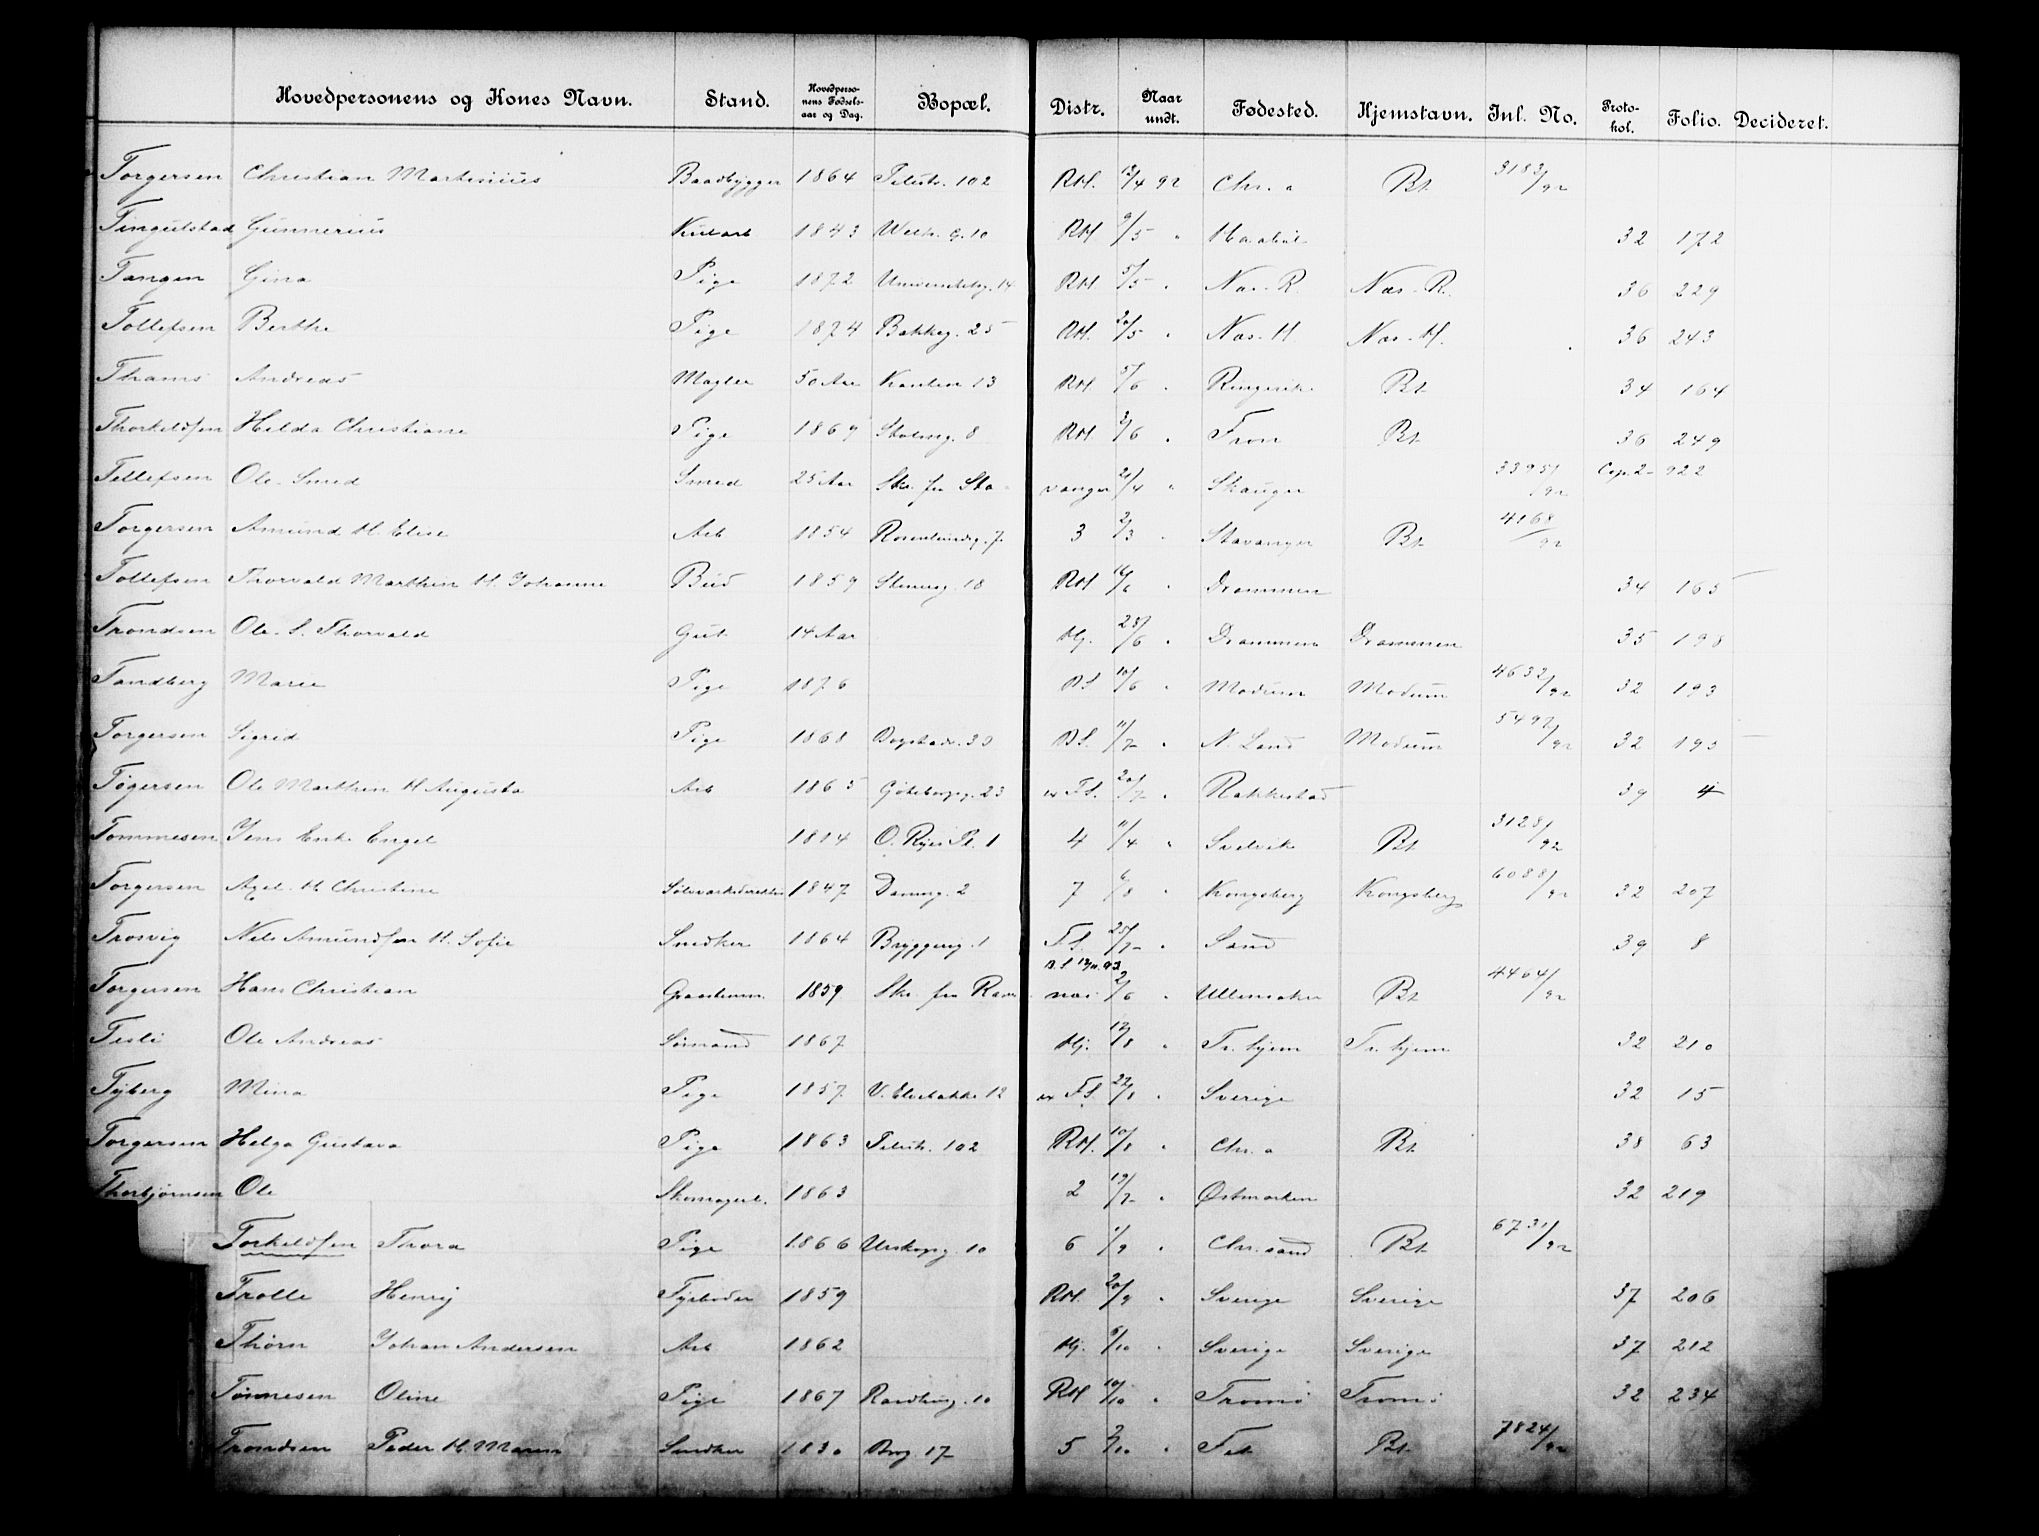 Hovedpersonens og Kones Navn. Stand. Hovedpersonens Fødselsaar og Dag. Bopæl. Distr. Naar undt. Fødested. Hjemstavn. Inl. No. Protokol. Folio. Decideret.
Torgersen Christian Martinius Baadbygger 1864 102 RH. 12/4 92 Chr.a Bt 3183/92
Tingulstad Gunnerius 1843 10 RH 9/5 " 32 172
Tangen Gina Pige 1872 14 RH 5/5 " Næs. R. Næs. R. 36 229
Tollefsen Berthe Pige 1874 Bakkeg. 25 RH. 20/5 " Næs. H. Næs. H. 36 243
Thams Andreas Mægler 50 Aar 13 RH. 5/6 " Ringerike Bt 34 164
Thorkeldsen Hilda Christiane Pige 1869 8 RH 3/6 " Fron Bt. 36 249
Tellefsen Ole Smed Smed 25 Aar Skr. fra Stavanger 21/4 " Skauger 3395/92 Cop. 2 - 922
Torgersen Amund H. Elise Arb 1854 Rosenlundg. 7. 3 2/3 " Stavanger Bt. 4168/92
Tollefsen Thorvald Marthin H. Johanne Bud 1859 Stenersg. 18 RH 16/6 " Drammen 34 165
Trondsen Ole S. Thorvald Gut 14 Aar Hj. 28/6 " Drammen Drammen 35 198
Tandberg Marie Pige 1876 BS. 10/6 " Modum Modum 4632/92 32 193
Torgersen Sigrid Pige 1868 Bogstadv. 30 BS. 11/7 " N. Land Modum 5492/92 32 195
Tøgersen Ole Marthin H Augusta Arb 1865 Göteborgg. 23 FS. 20/7 " Rakkestad 39 4
Tommesen Jens Engel 1814 O. Ryes Pl. 1 4 11/4 " Svelvik Bt 3128/92
Torgersen Axel H Christine Sølvverksdirektør 1847 2 7 6/8 " Kongsberg Kongsberg 6088/92 32 207
Trosvig Nils Amundsen H. Sofie Snedker 1864 Bryggerg. 1 FS. 25/7 " Sand 39 8
Torgersen Hans Christian 1859 Skr. fra Ramnæs BS 12/11 93 2/6 " Ullensaker Bt. 4404/92
Tesli Ole Andreas Sømand 1867 Hj. 12/8 " Tr. hjem Tr. hjem 32 210
Tyberg Mina Pige 1857 V. Elvebakke 12 FS. 22/8 " Sverige 32 15
Torgersen Helga Gustava Pige 1863 102 RH. 10/8 " Chr. a Bt. 38 63
Thorbjørnsen Ole Skomagerl. 1863 2 19/7 " Østmarken 32 219
Torkeldsen Thora Pige 1866 Urskogg. 10 6 1/9 " Chr.sand Bt 6731/92
Trolle Henrij Fyrbøder 1859 RH. 20/9 " Sverige Sverige 37 206
Thörn Johan Andersen Arb 1862 Hj. 6/10 " Sverige Sverige 37 212
Tønnesen Oline Pige 1867 10 RH 10/10 " Tromö Tromö 32 234
Trondsen Peder H. Maren Snedker 1830 Brog. 17 5 3/10 " Fet Bt. 7824/92